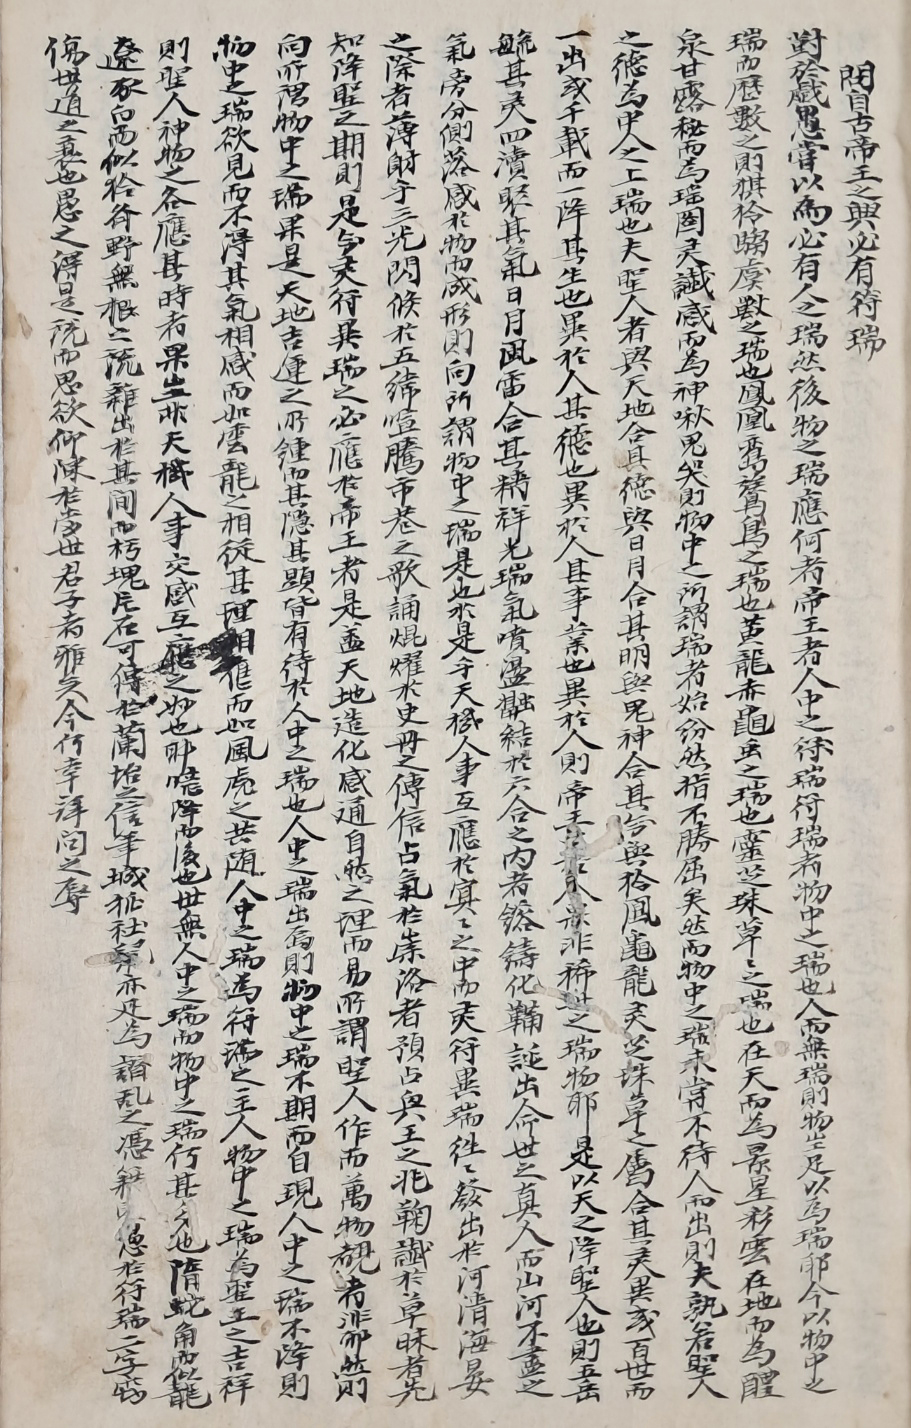 問自古帝王之興必有符瑞
對於戲愚嘗以為必有人之瑞然後物之瑞應何者帝王者人中之符瑞符瑞者物中之瑞也人而無瑞則物豈足以為瑞耶今以物中之
瑞而歷數之則猉獜騶虞獸之瑞也鳳凰鸞鷟鳥之瑞也黃龍赤龜虫之瑞也靈芝珠草之瑞也在天而為景星彩雲在地而為醴
泉甘露秘而為瑤圖灵讖感而為神啾鬼哭則物中之所謂瑞者始紛然指不勝屈矣然而物中之瑞未嘗不待人而出則夫孰若聖人
之德為中人之上瑞也夫聖人者與天地合其德與日月合其明與鬼神合其 與獜鳳龜龍灵芝珠草之屬合其灵異或百世而
一出或千載而一降其生也異於人其德也異於人其事業也異於人則帝王 人豈非稀世之瑞物耶是以天之降聖人也則五岳
毓其灵四瀆聚其氣日月風雷合其精祥光瑞氣噴盪融結於六合之內者鎔鑄化鞴誕出命世之真人而山河不盡之
氣旁分側落感於物而成形則向所謂物中之瑞是也於是乎天機人事互應於冥々之中而灵符異瑞往々發出於河清海晏
之際者薄射乎三光閃候於五緯喧騰市巷之歌誦焜燿於史冊之傳信占氣於 洛者預占興王之兆鞠讖於草昧者先
知降聖之期則是 灵符異瑞之必應於帝王者是盖天地造化感通自然之理而易所謂聖人作而萬物覩者非耶然則
向所謂物中之瑞果是天地吉運之所鍾而其隱其顯皆有待於人中之瑞也人中之瑞出焉則物中之瑞不期而自現人中之瑞不降則
物中之瑞欲見而不得其氣相感而如雲龍之相從其理相 而如風虎之共隨人中之瑞為符瑞之主人物中之瑞為聖主之吉祥
則聖人神物之各應其時者果豈非天機人事交感互應之妙也耶噫降而後也世無人中之瑞而物中之瑞何其多也隋蛇角而似龍
遼豕白而似獜齊野無根之說雜出於其間而朽塊片石可傳於蘭坮之信筆城狐社鼠亦足為譖乱之憑藉 於符瑞二字竊
傷世道之衰也愚之得是說而思欲仰陳於當世君子者雅久今何幸詳問之辱